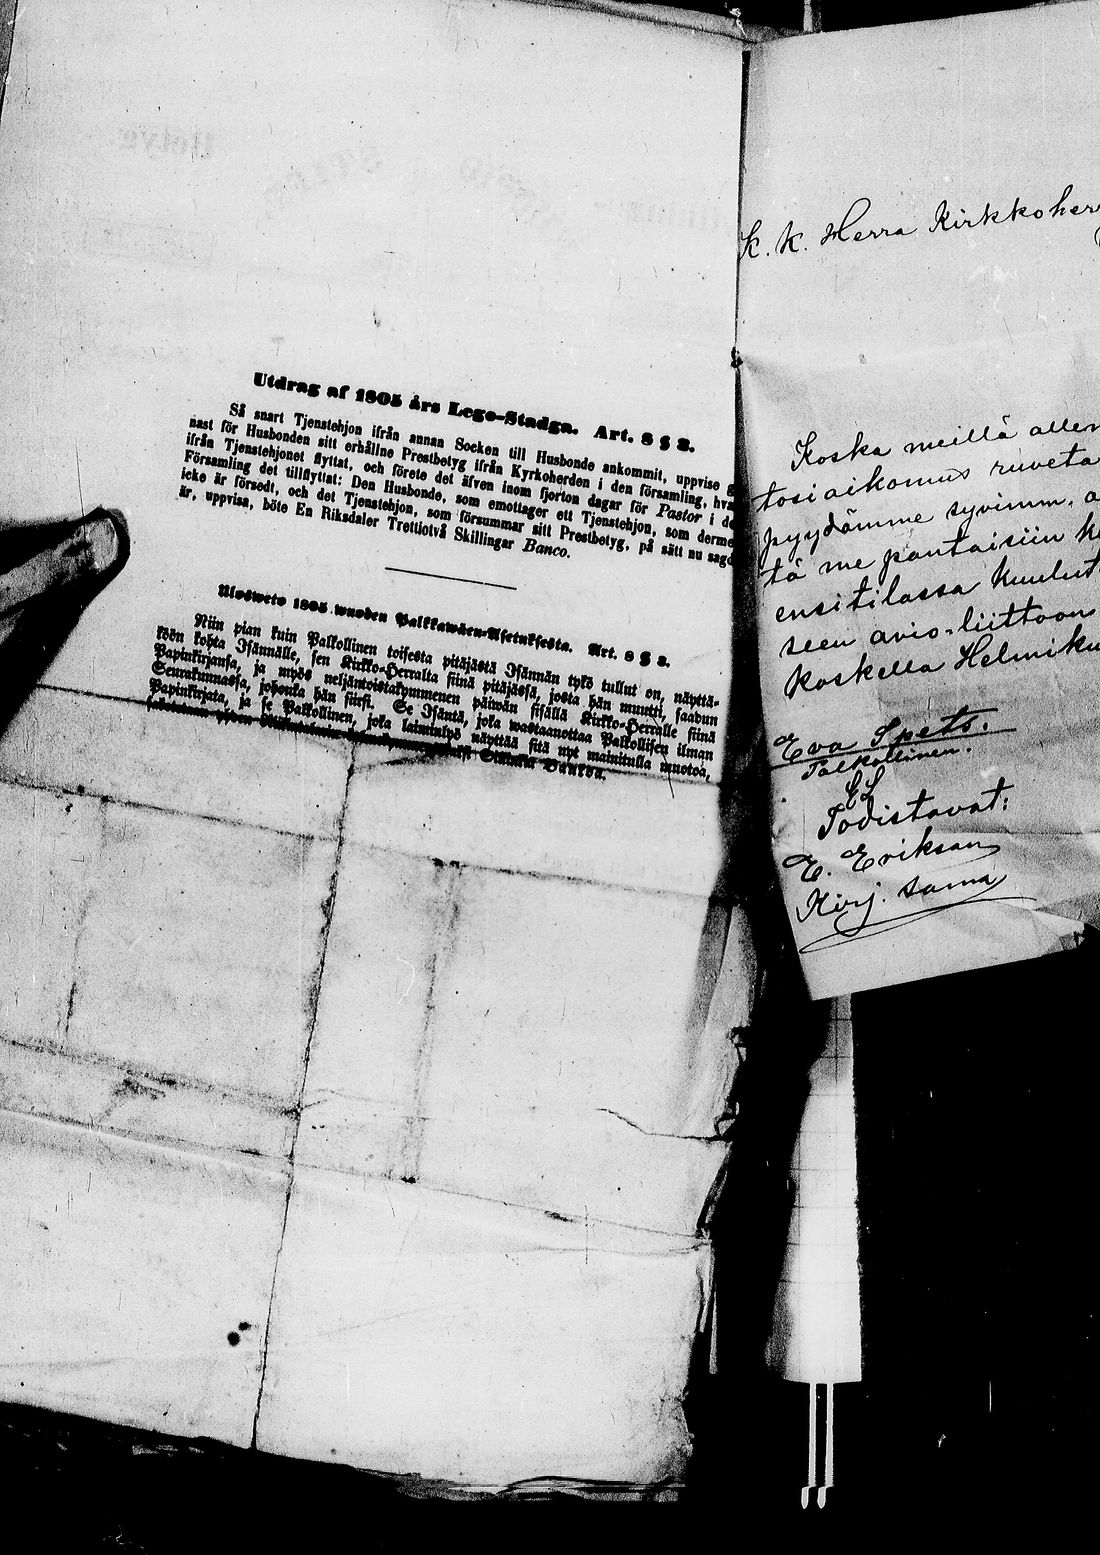 Utdrag af 1805 års Lego-Stadga. Art. 8 § 2.
Så snart Tjenstehjon ifrån annan Socken till Husbonde ankommit, uppvise
nast för Husbonden sitt erhållne Prestbetyg ifrån Kyrkoherden i den församling,
ifrån Tjenstehjonet flyttat, och förete det äfven inom fjorton dagar för Pastor i
Församling det tillflyttat: Den Husbonde, som emottager ett Tjenstehjon, som
icke är försedt, och det Tjenstehjon, som försummar sitt Prestbetyg, på sätt nu
är, uppvisa, böte En Riksdaler Trettiotvå Skillingar Banco.
Uloswето 1805 wuoden Palkkawäen-Asetuksesta. Art. 8 § 2.
Niin pian kuin Palkollinen toisesta pitäjästä Isännän tykö tullut on, näyttä-
köön kohta Isännälle, sen Kirkko-Herralta siinä pitäjässä, josta hän muutti, saadun
Papinkirjansa, ja myös neljäntoistakymmenen päiwän sisällä Kirkko-Herralle siinä
Seurakunnassa, johonka hän siirsi. Se Isäntä, joka wastaanottaa Palkollisen ilman
Papinkirjata, ja se Palkollinen, joka laiminlyö näyttää sitä nyt mainitulla muotoa,
K. K. Herra
Koska meillä
tosi aikomus ruveta
pyydämme syvimm.
tä me pantaisiin
ensitilassa
seen avio-liittoon
Koskella
Eva Spets.
Palkollinen.
Todistavat:
E. Erikson
Kirj. sama